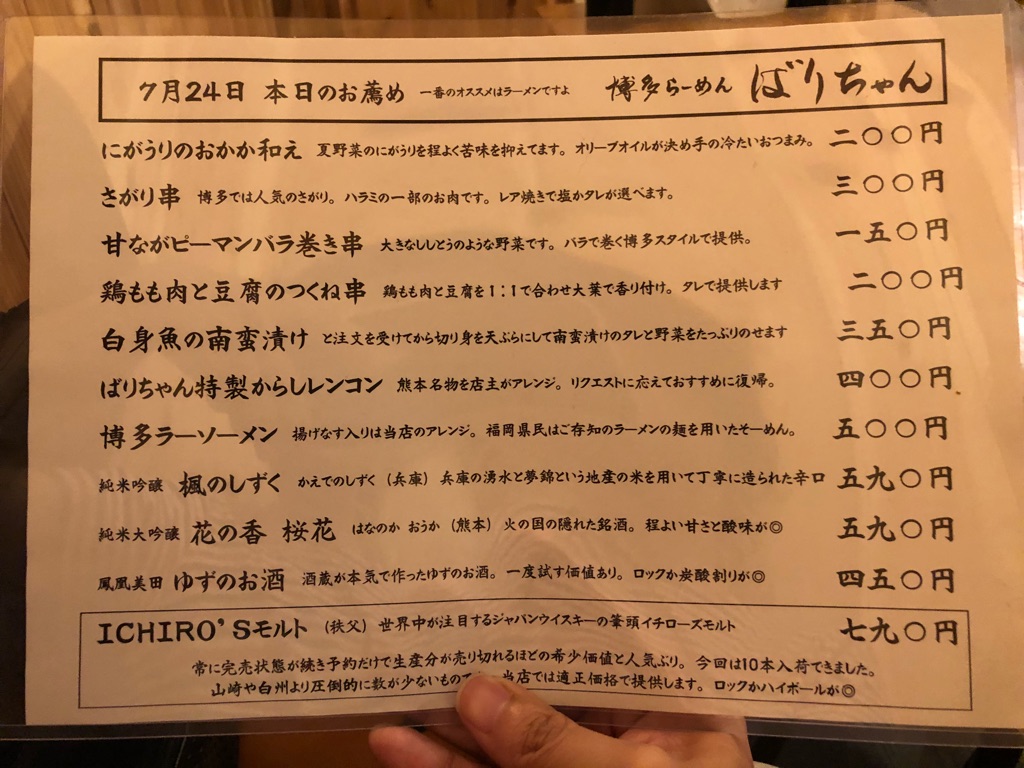 7月24日 本日のお薦め 一番のオススメはラーメンですよ 博多らーめん ばりちゃん
にがうりのおかか和え 夏野菜のにがうりを程よく苦味を抑えてます。オリーブオイルが決め手の冷たいおつまみ。 二〇〇円
さがり串 博多では人気のさがり。ハラミの一部のお肉です。レア焼きで塩かタレが選べます。 三〇〇円
甘ながピーマンバラ巻き串 大きなししとうのような野菜です。バラで巻く博多スタイルで提供。 一五〇円
鶏もも肉と豆腐のつくね串 鶏もも肉と豆腐を1:1で合わせ大葉で香り付け。タレで提供します 二〇〇円
白身魚の南蛮漬け と注文を受けてから切り身を天ぷらにして南蛮漬けのタレと野菜をたっぷりのせます 三五〇円
ばりちゃん特製からしレンコン 熊本名物を店主がアレンジ。リクエストに応えておすすめに復帰。 四〇〇円
博多ラーソーメン 揚げなす入りは当店のアレンジ。福岡県民はご存知のラーメンの麺を用いたそーめん。 五〇〇円
純米吟醸 楓のしずく かえでのしずく（兵庫）兵庫の湧水と夢錦という地産の米を用いて丁寧に造られた辛口 五九〇円
純米大吟醸 花の香 桜花 はなのか おうか（熊本）火の国の隠れた銘酒。程よい甘さと酸味が◎ 五九〇円
鳳凰美田 ゆずのお酒 酒蔵が本気で作ったゆずのお酒。一度試す価値あり。ロックか炭酸割りが◎ 四五〇円
ICHIRO'Sモルト（秩父）世界中が注目するジャパンウイスキーの筆頭イチローズモルト 七九〇円
常に完売状態が続き予約だけで生産分が売り切れるほどの希少価値と人気ぶり。今回は10本入荷できました。
山崎や白州より圧倒的に数が少ないもので 当店では適正価格で提供します。ロックかハイボールが◎